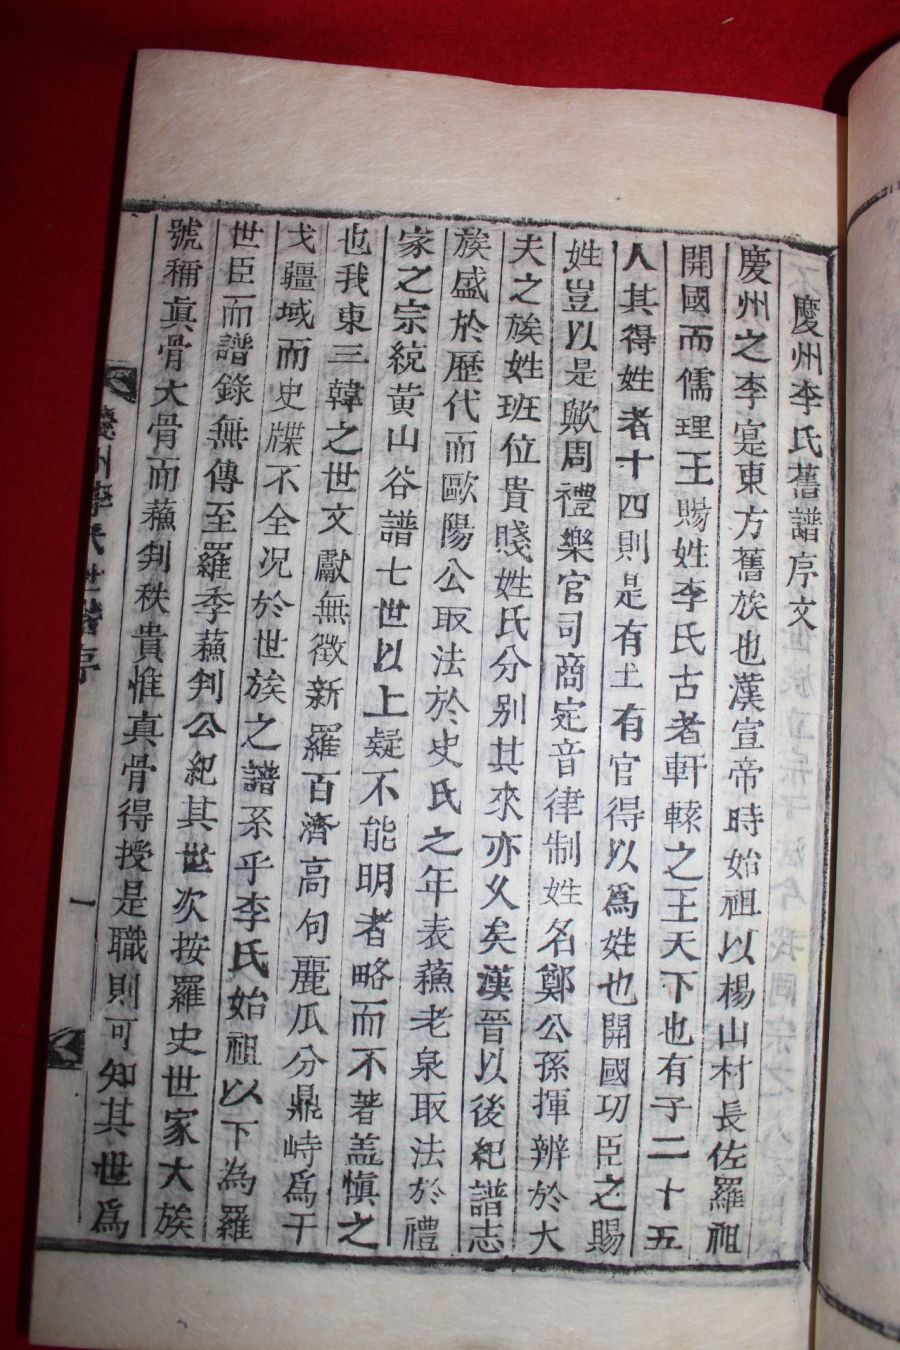 慶州李氏舊譜序文
慶州之李寔東方舊族也漢宣帝時始祖以楊山村長佐羅祖
開國而儒理王賜姓李氏古者軒轅之王天下也有子二十五
人其得姓者十四則是有土有官得以爲姓也開國功臣之賜
姓豈以是歟周禮樂官司商定音律制姓名鄭公孫揮辨於大
夫之族姓班位貴賤姓氏分别其來亦乆矣漢晉以後紀譜志
族盛於歷代而歐陽公取法於史氏之年表蘓老泉取法於禮
家之宗統黄山谷譜七世以上疑不能明者略而不著盖愼之
也我東三韓之世文獻無徵新羅百濟高句麗瓜分鼎峙爲干
戈疆域而史牒不全况於世族之譜系乎李氏始祖以下為羅
世臣而譜錄無傳至羅季蘓判公紀其世次按羅史世家大族
號稱眞骨大骨而蘓判秩貴惟真骨得授是職則可知其世爲
慶州李氏世譜序
一